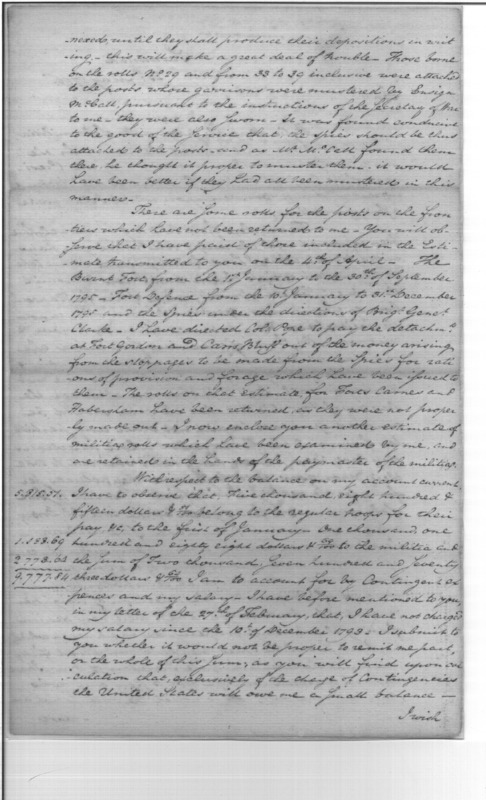 nexed, until they shall produce their depositions in writ
ing - this will make a great deal of trouble - Those borne
on the rolls No. 29 and from 33 to 39 inclusive were attached
to the posts whose garrisons were mustered by Ensign
McCall, pursuant to the instructions of the Secretary of War
to me - they were also sworn - It was found conducive
to the good of the Service that the Spies should be thus
attached to the posts, and as Mr. McCall found them
there he thought it proper to muster them - it would
have been better if they had all been mustered in this
manner -
There are some rolls for the posts on the fron
tiers which have not been returned to me - You will ob-
serve that I have paid of those included in the Esti-
mate transmitted to you on the 4th of April - The
Burnt Fort, from the January to the 30th of September
1795 - Fort Defence from the January to 31st December
1795 and the Spies under the directions of Brigr. Genel.
Clarke - I have directed Colo. to pay the detachmts
at Fort Gordon and Bluff out of the money arising
from the stoppages to be made from the Spies for rati
ons of provision and forage which have been issued to
them - The rolls on that estimate, for Forts Carnes and
Habersham have been returned, as they were not proper
ly made out - I now enclose you another estimate of
militia rolls which have been examined by me, and
are retained in the hands of the paymaster of the militia.
With respect to the ballance on my account current
5.815.57. I have to observe that, Five thousand eight hundred &
fifteen dollars & belong to the regular troops for their
pay &c, to the first of January One thousand, one
1.188.69 hundred and eighty eight dollars & to the militia and
2.773.63 the sum of Two thousand, Seven hundred and Seventy
9.777.84 three dollars & I am to account for by Contingent ex
pences and my salary - I have before mentioned to you,
in my letter of the 27th of February, that, I have not charged
my salary since the of December 1793. I submit to
you whether it would not be proper to remit me part,
or the whole of this sum, as you will find upon cal
culation that, exclusively of the charge of Contingencies
the United States will owe me a small balance -
I wish